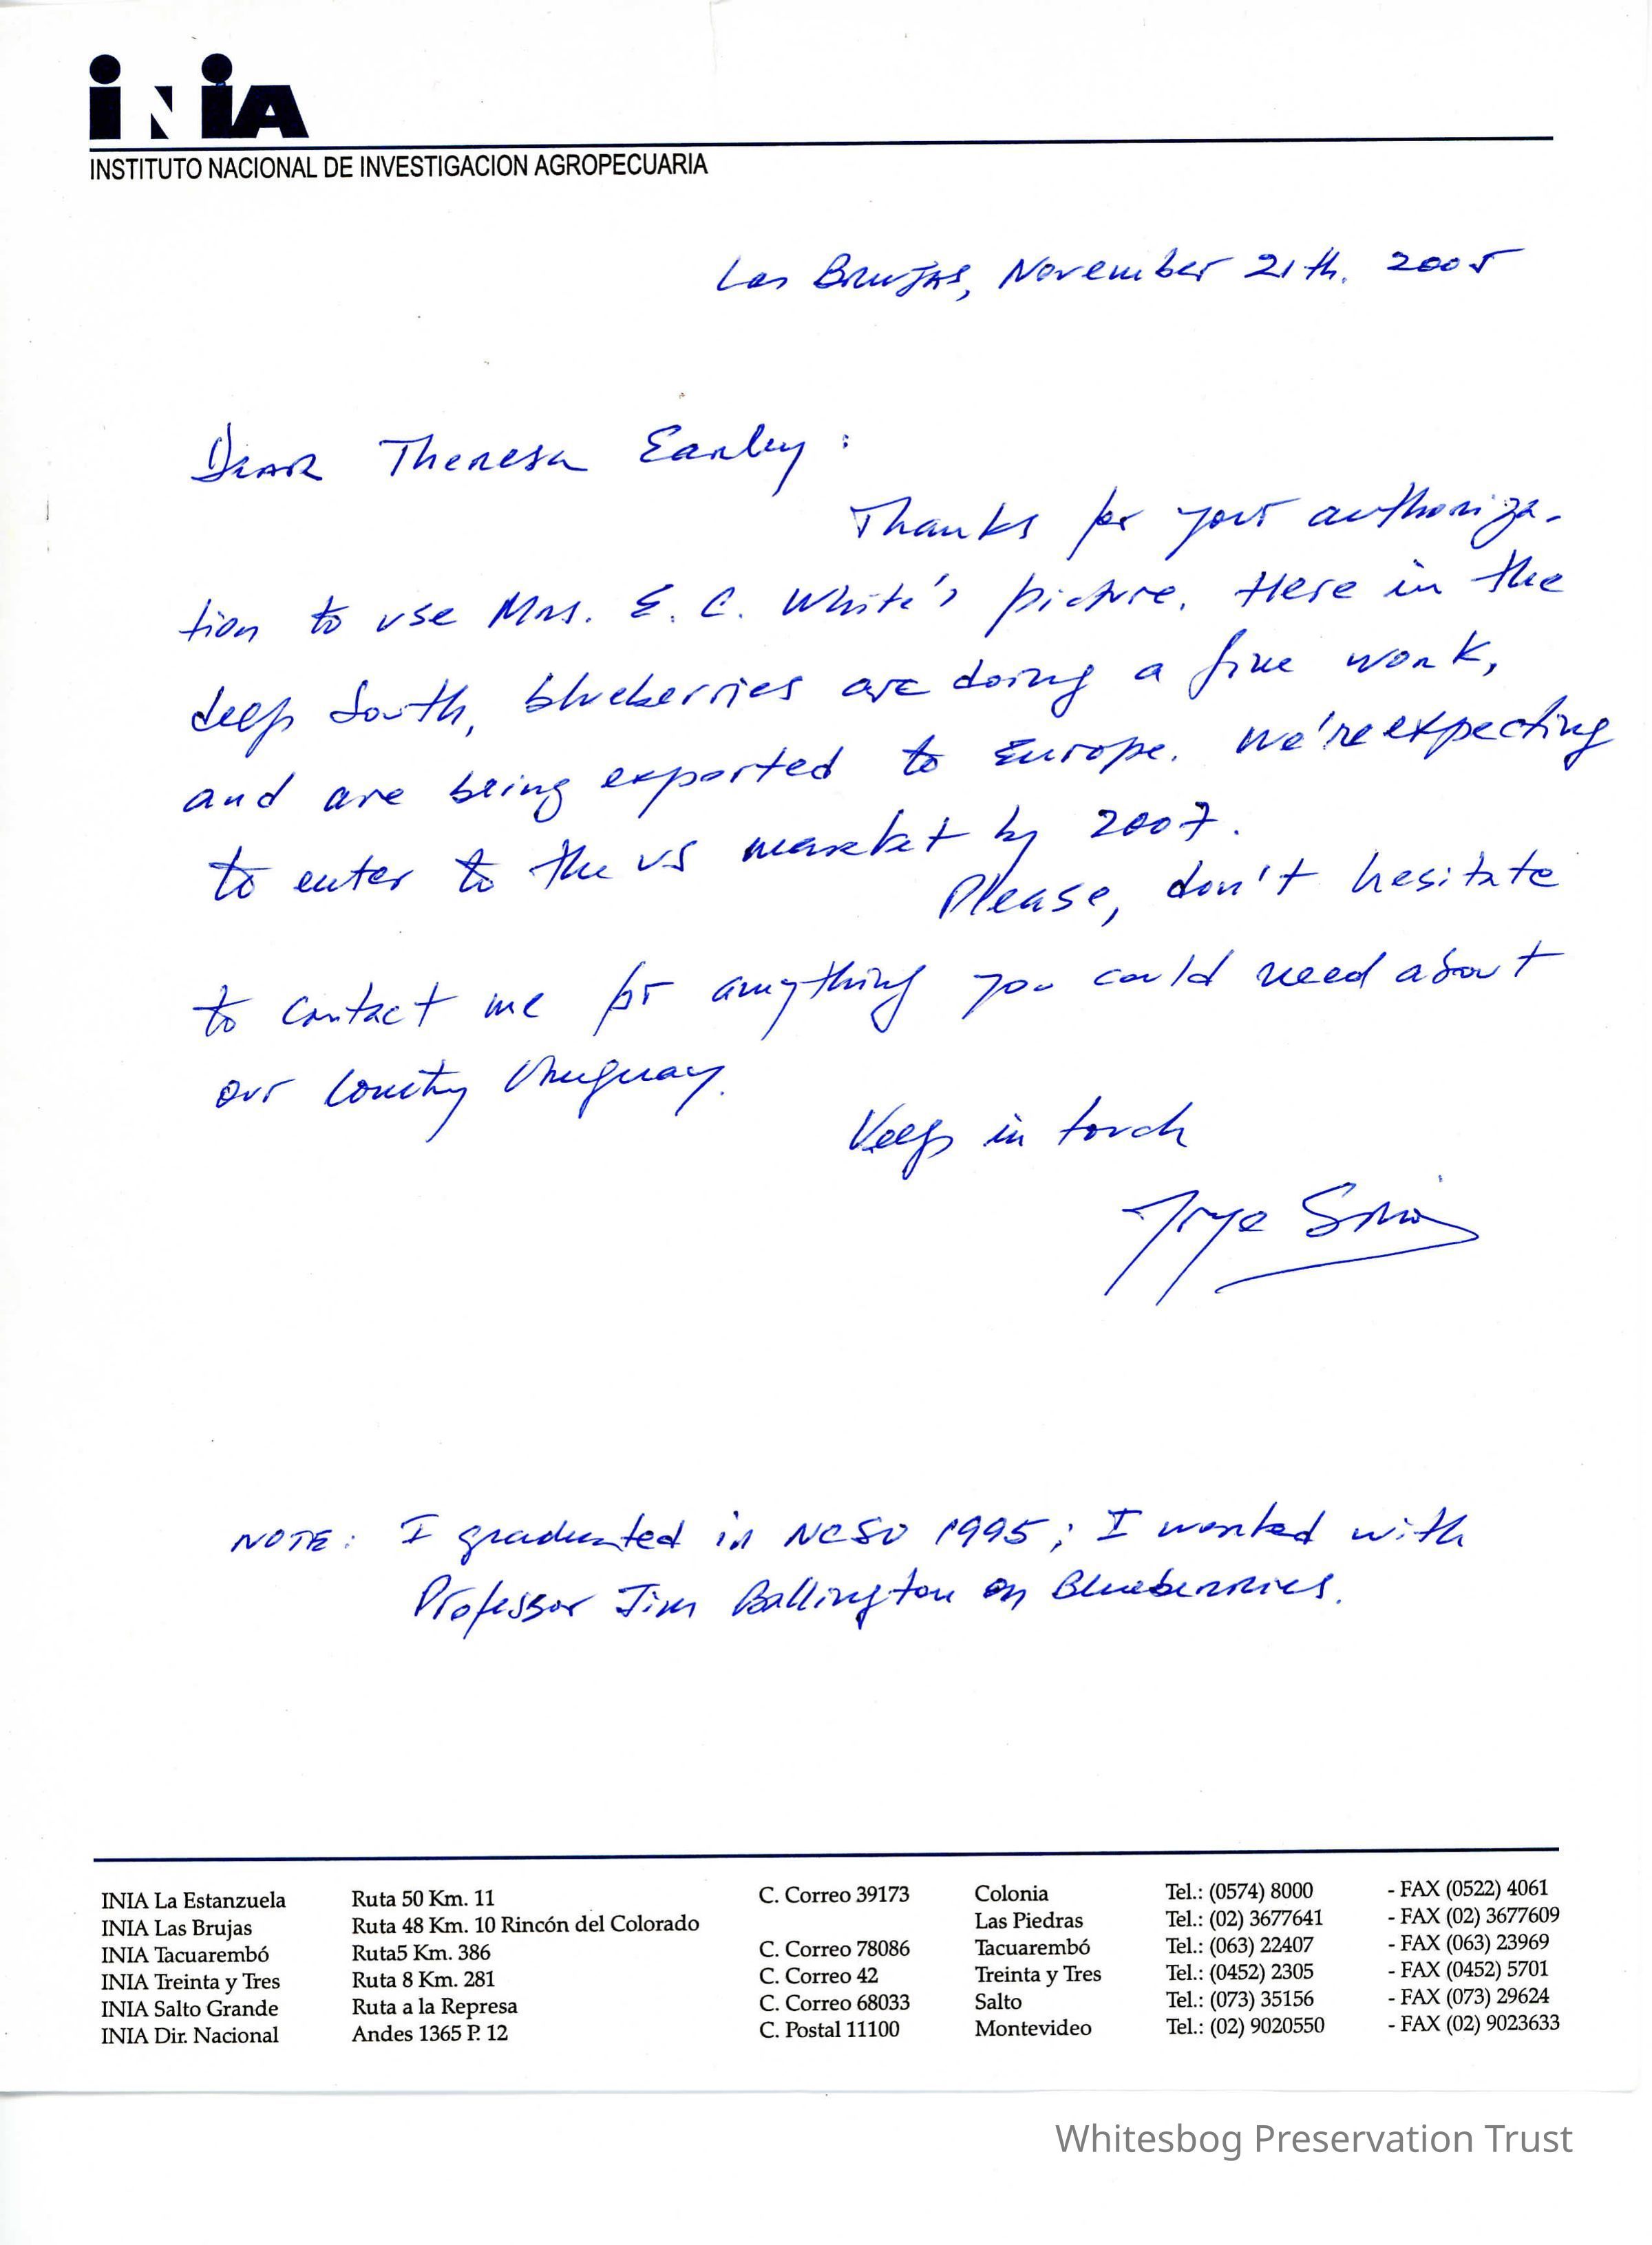 INIA
INSTITUTO NACIONAL DE INVESTIGACION AGROPECUARIA
Las Brujas, November 21th. 2005
Dear Theresa Earley:
Thanks for your authoriza-
tion to use Mrs. E. C. White's picture. Here in the
deep South, blueberries are doing a fine work,
and are being exported to Europe. We're expecting
to enter to the US market by 2007.
Please, don't hesitate
to contact me for anything you could need about
our country Uruguay.
Keep in touch
Jorge
NOTE: I graduated in NCSU 1995; I worked with
Professor Jim Ballington on Blueberries.
INIA La Estanzuela Ruta 50 Km. 11 C. Correo 39173 Colonia Tel.: (0574) 8000 - FAX (0522) 4061
INIA Las Brujas Ruta 48 Km. 10 Rincón del Colorado Las Piedras Tel.: (02) 3677641 - FAX (02) 3677609
INIA Tacuarembó Ruta5 Km. 386 C. Correo 78086 Tacuarembó Tel.: (063) 22407 - FAX (063) 23969
INIA Treinta y Tres Ruta 8 Km. 281 C. Correo 42 Treinta y Tres Tel.: (0452) 2305 - FAX (0452) 5701
INIA Salto Grande Ruta a la Represa C. Correo 68033 Salto Tel.: (073) 35156 - FAX (073) 29624
INIA Dir. Nacional Andes 1365 P. 12 C. Postal 11100 Montevideo Tel.: (02) 9020550 - FAX (02) 9023633
Whitesbog Preservation Trust